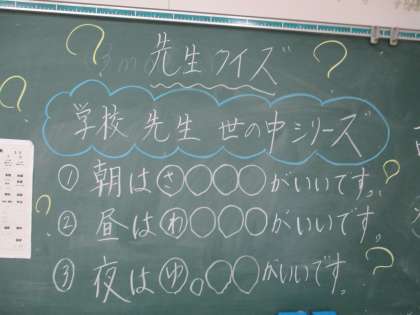 先生クイズ
学校 先生 世の中シリーズ
① 朝はさ○○○がいいです。
② 昼はわ○○○がいいです。
③ 夜はゆ。○○がいいです。